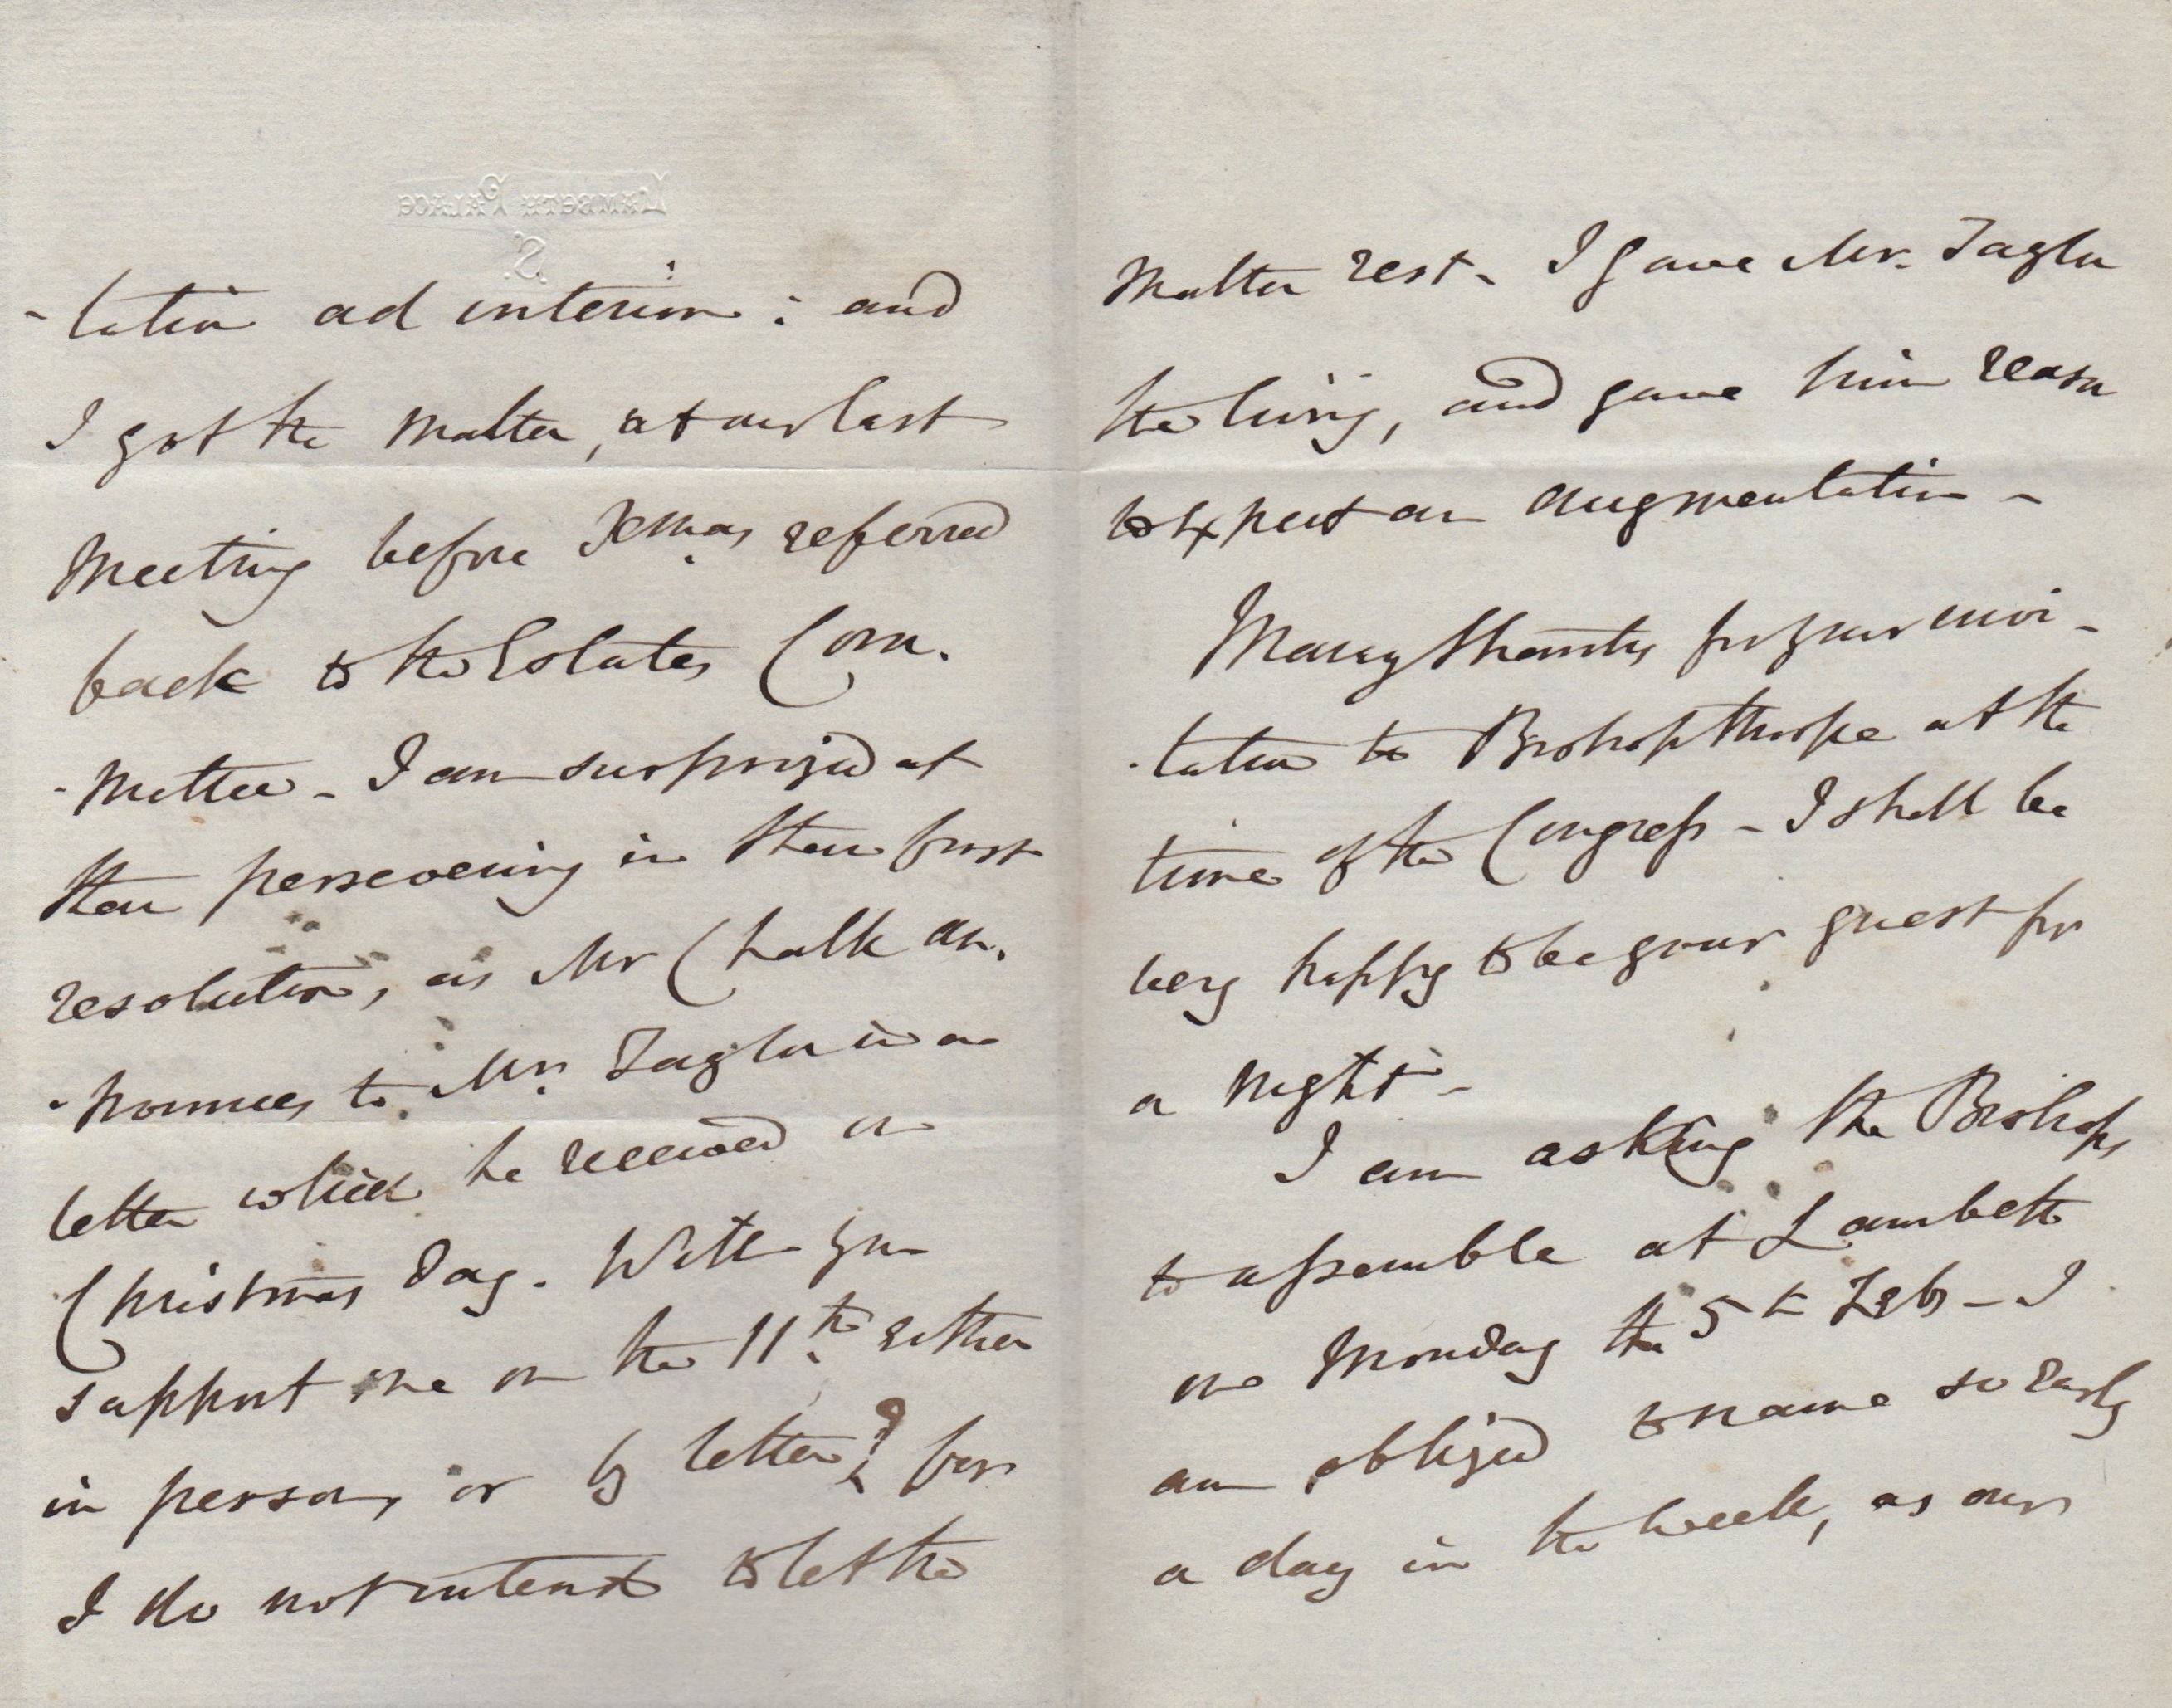 Lambeth Palace
S.
-tation ad interim: and
I got the matter, at our last
Meeting before Xmas, referred
back to the Estates Com.
-mittee - I am surprized at
their persevering in their first
resolution, as Mr Chalk an.
-nounces to Mr. Taylor in a
letter which he received on
Christmas Day. Will you
support me on the 11th either
in person, or by letter? for
I do not intend to let the
Matter rest - I gave Mr. Taylor
the living, and gave him reason
to expect an augmentation -
Many thanks for your invi-
-tation to Bishopthorpe at the
time of the Congress - I shall be
very happy to be your guest for
a night -
I am asking the Bishops
to assemble at Lambeth
on Monday the 5th Feb - I
am obliged to name so early
a day in the week, as our